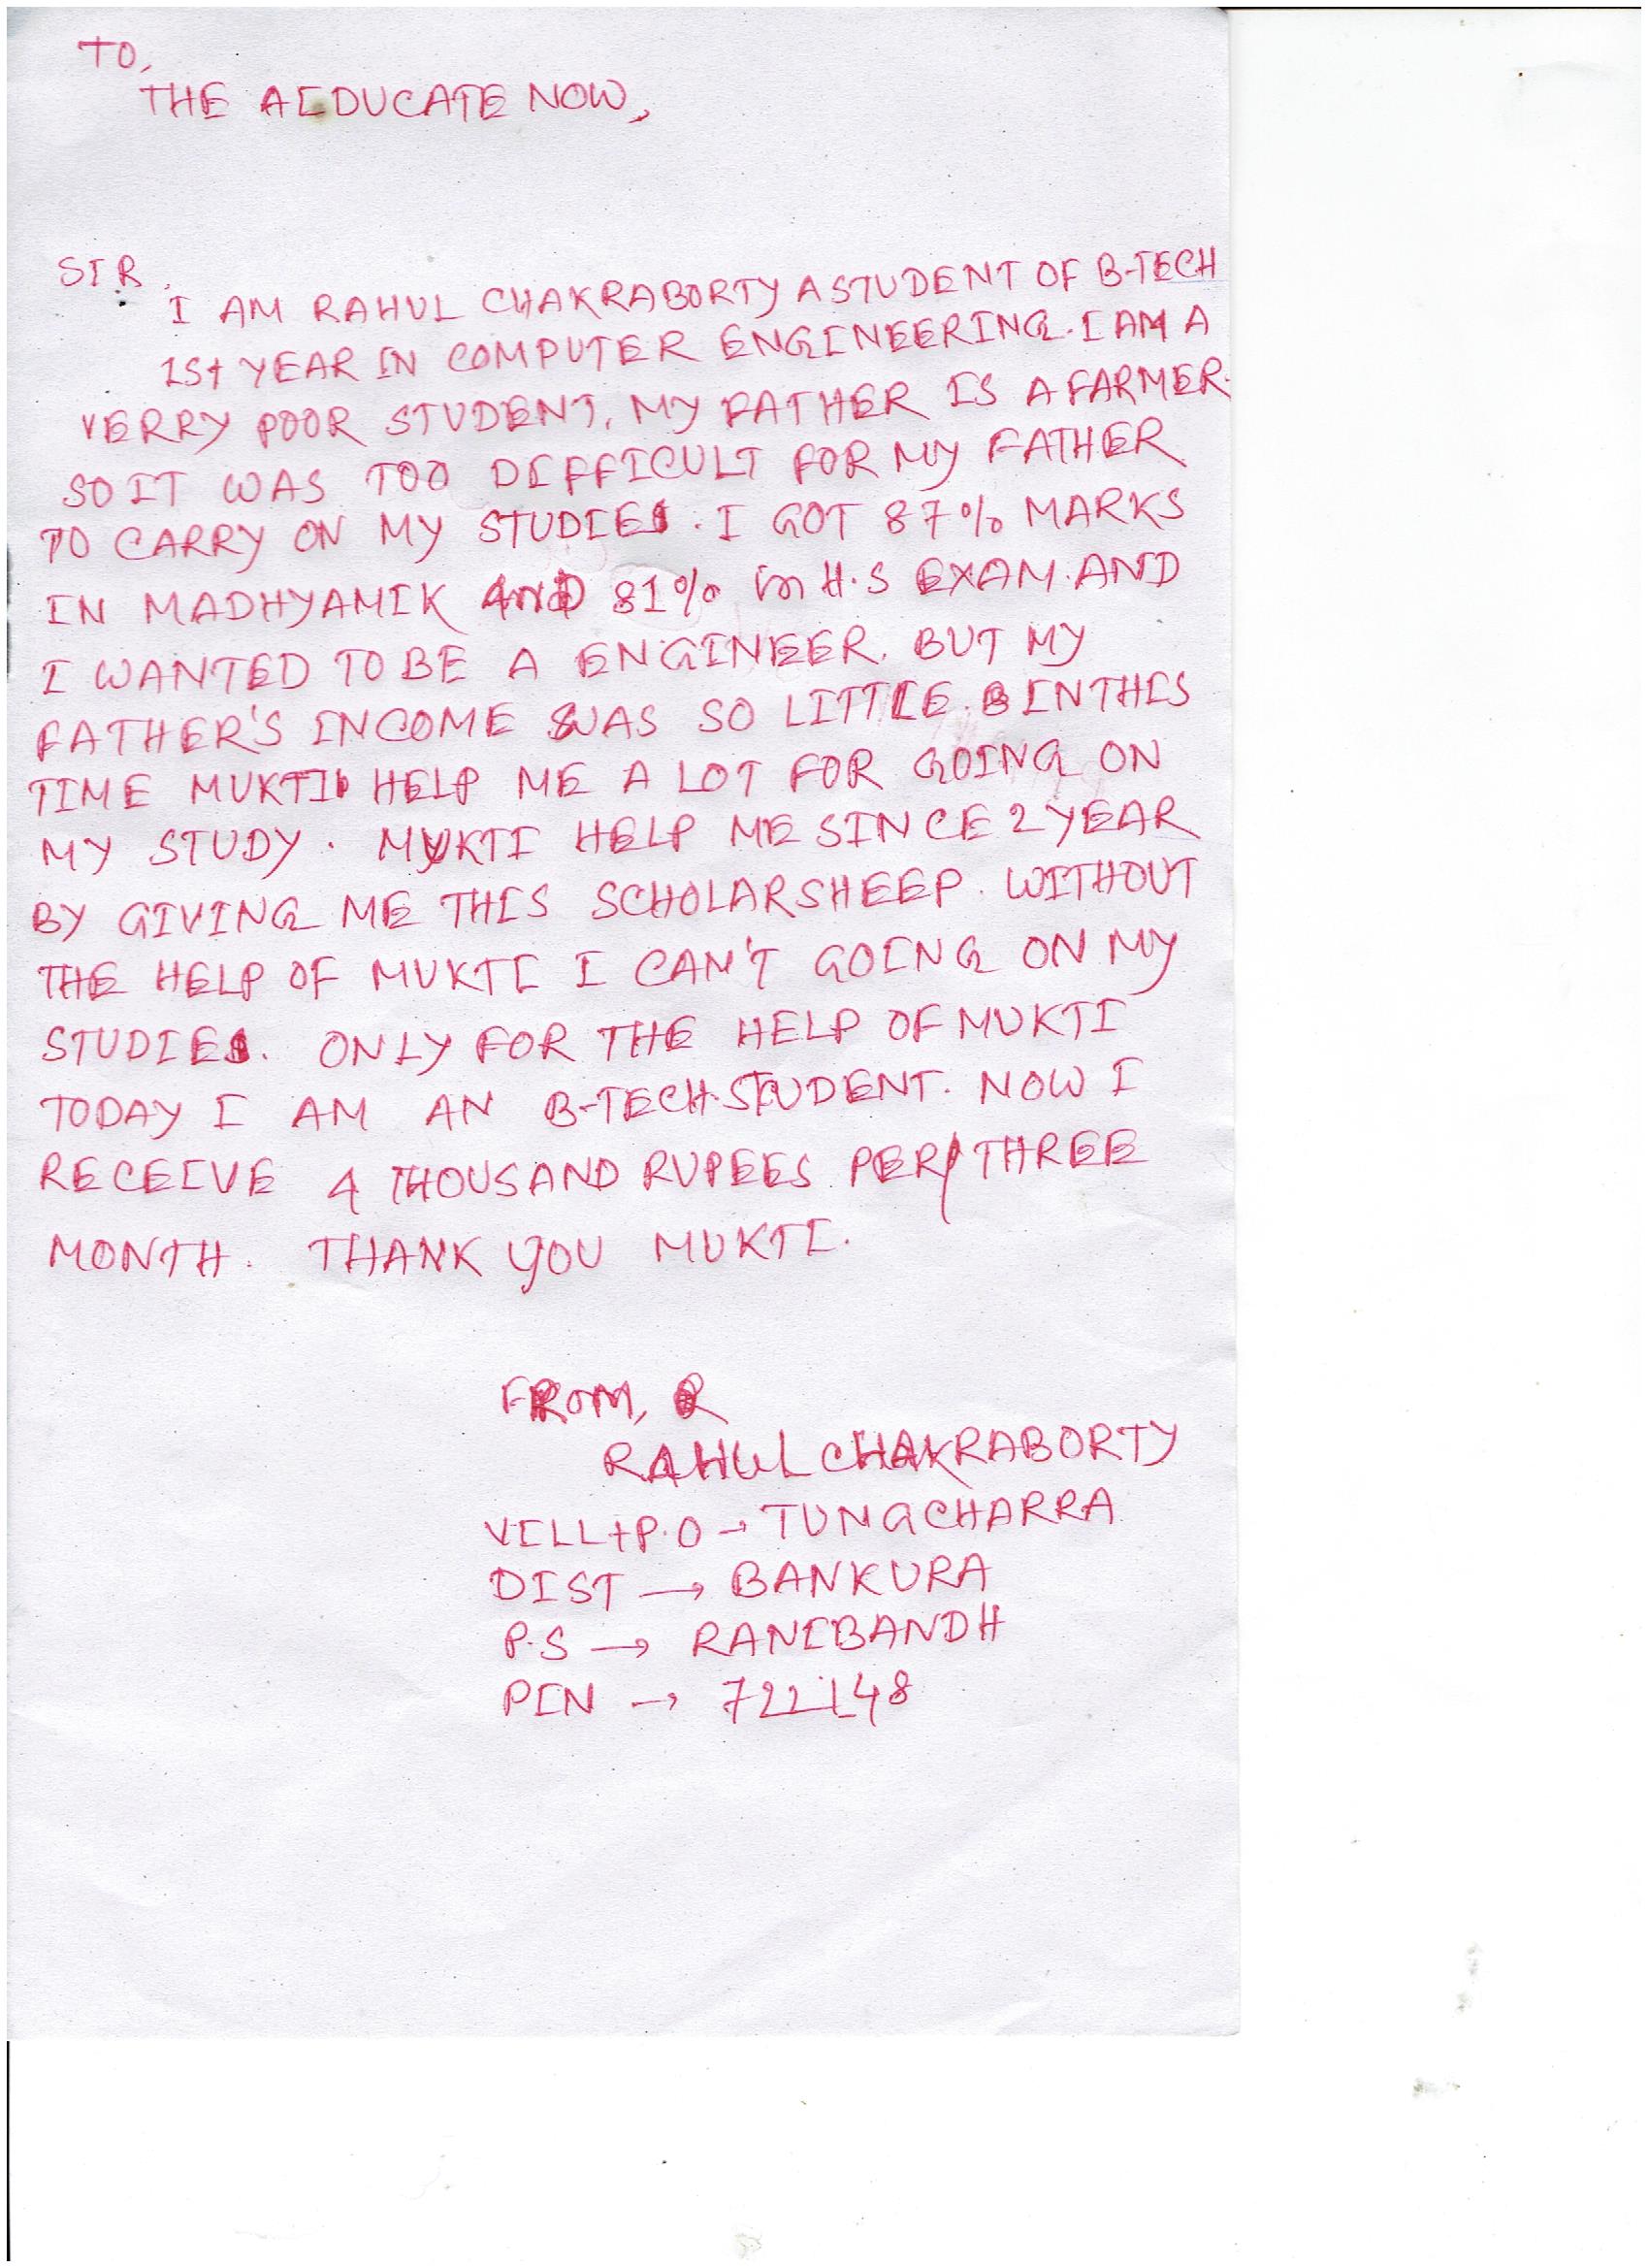 TO,
THE AIDUCATE NOW,
SIR,
I AM RAHUL CHAKRABORTY A STUDENT OF B-TECH
1St YEAR IN COMPUTER ENGINEERING. I AM A
VERRY POOR STUDENT. MY FATHER IS A FARMER.
SO IT WAS TOO DIFFICULT FOR MY FATHER
TO CARRY ON MY STUDIES. I GOT 87% MARKS
IN MADHYAMIK AND 81% in H.S EXAM. AND
I WANTED TO BE A ENGINEER. BUT MY
FATHER'S INCOME WAS SO LITTLE. IN THIS
TIME MUKTI HELP ME A LOT FOR GOING ON
MY STUDY. MUKTI HELP ME SINCE 2 YEAR
BY GIVING ME THIS SCHOLARSHEEP. WITHOUT
THE HELP OF MUKTI I CAN'T GOING ON MY
STUDIES. ONLY FOR THE HELP OF MUKTI
TODAY I AM AN B-TECH STUDENT. NOW I
RECEIVE 4 THOUSAND RUPEES PER THREE
MONTH. THANK YOU MUKTI.
FROM,
RAHUL CHAKRABORTY
VILL+P.O → TUNGCHARRA
DIST → BANKURA
P.S → RANIBANDH
PIN → 722148